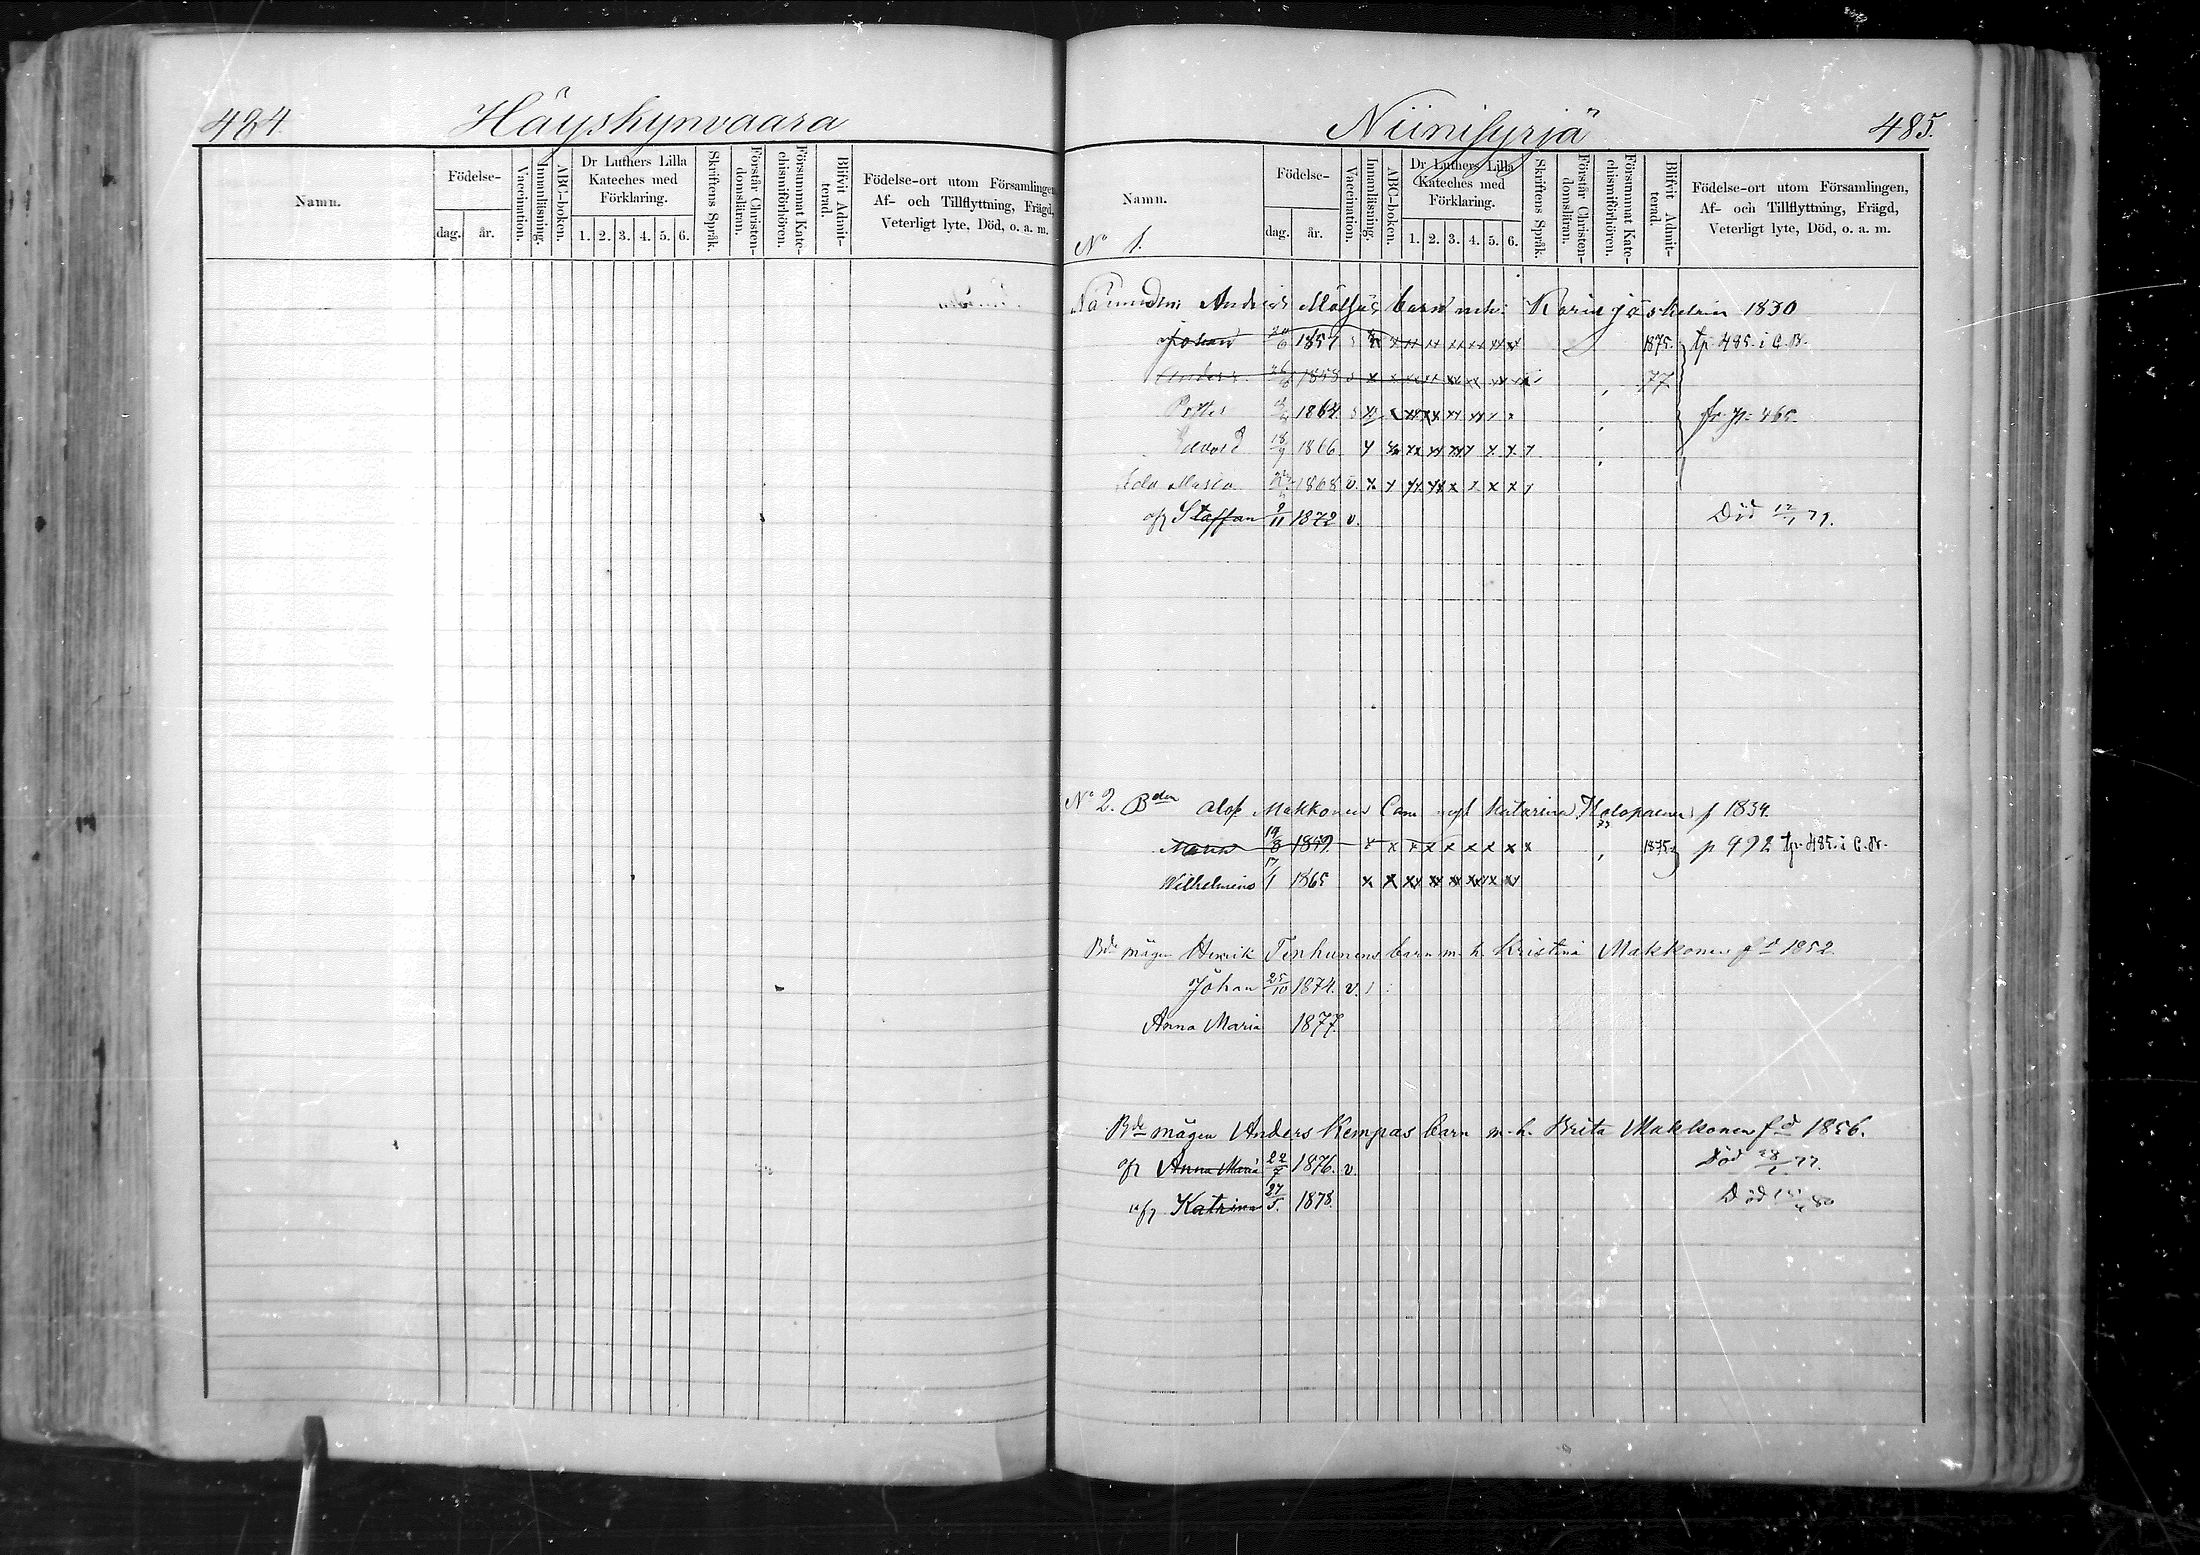 484. Häyskynvaara
Namn.
Födelse-
dag. år.
Vaccination.
Innanläsning.
ABC-boken.
Dr Luthers Lilla
Kateches med
Förklaring.
1. 2. 3. 4. 5. 6.
Skriftens Språk.
Förstår Christen-
domsläran.
Försummat Kate-
chismiförhören.
Blifvit Admit-
terad.
Födelse-ort utom Församlingen,
Af- och Tillflyttning, Frägd,
Veterligt lyte, Död, o. a. m.
Niinisyrjä 485.
Namn.
Födelse-
dag. år.
Vaccination.
Innanläsning.
ABC-boken.
Dr Luthers Lilla
Kateches med
Förklaring.
1. 2. 3. 4. 5. 6.
Skriftens Språk.
Förstår Christen-
domsläran.
Försummat Kate-
chismiförhören.
Blifvit Admit-
terad.
Födelse-ort utom Församlingen,
Af- och Tillflyttning, Frägd,
Veterligt lyte, Död, o. a. m.
No 1.
barn 1830
Johan 1857 1875. tp. 485. i C.B.
Anders 1858 77
Petter 1864 fr. p. 465.
Edvard 18/9 1866
Maria 1868 v.
Staffan 9/11 1872 v. Död 12/1 79.
No 2. Bden Olof Makkonens Katarina Holopainen f 1834.
19/8 1859. 1875. p 992 tp. 485. i C.B.
Wilhelmina 17/1 1865
Bde mågen Henrik Tenhunens barn m. h. Kristina Makkonen fd 1852.
Johan 25/10 1874. v.
Anna Maria 1877.
Bde mågen Anders Kempas barn m. h. Brita Makkonen fd 1856.
Anna Maria 22/7 1876. v. Död 77.
Katrina 27/5. 1878. Död 80